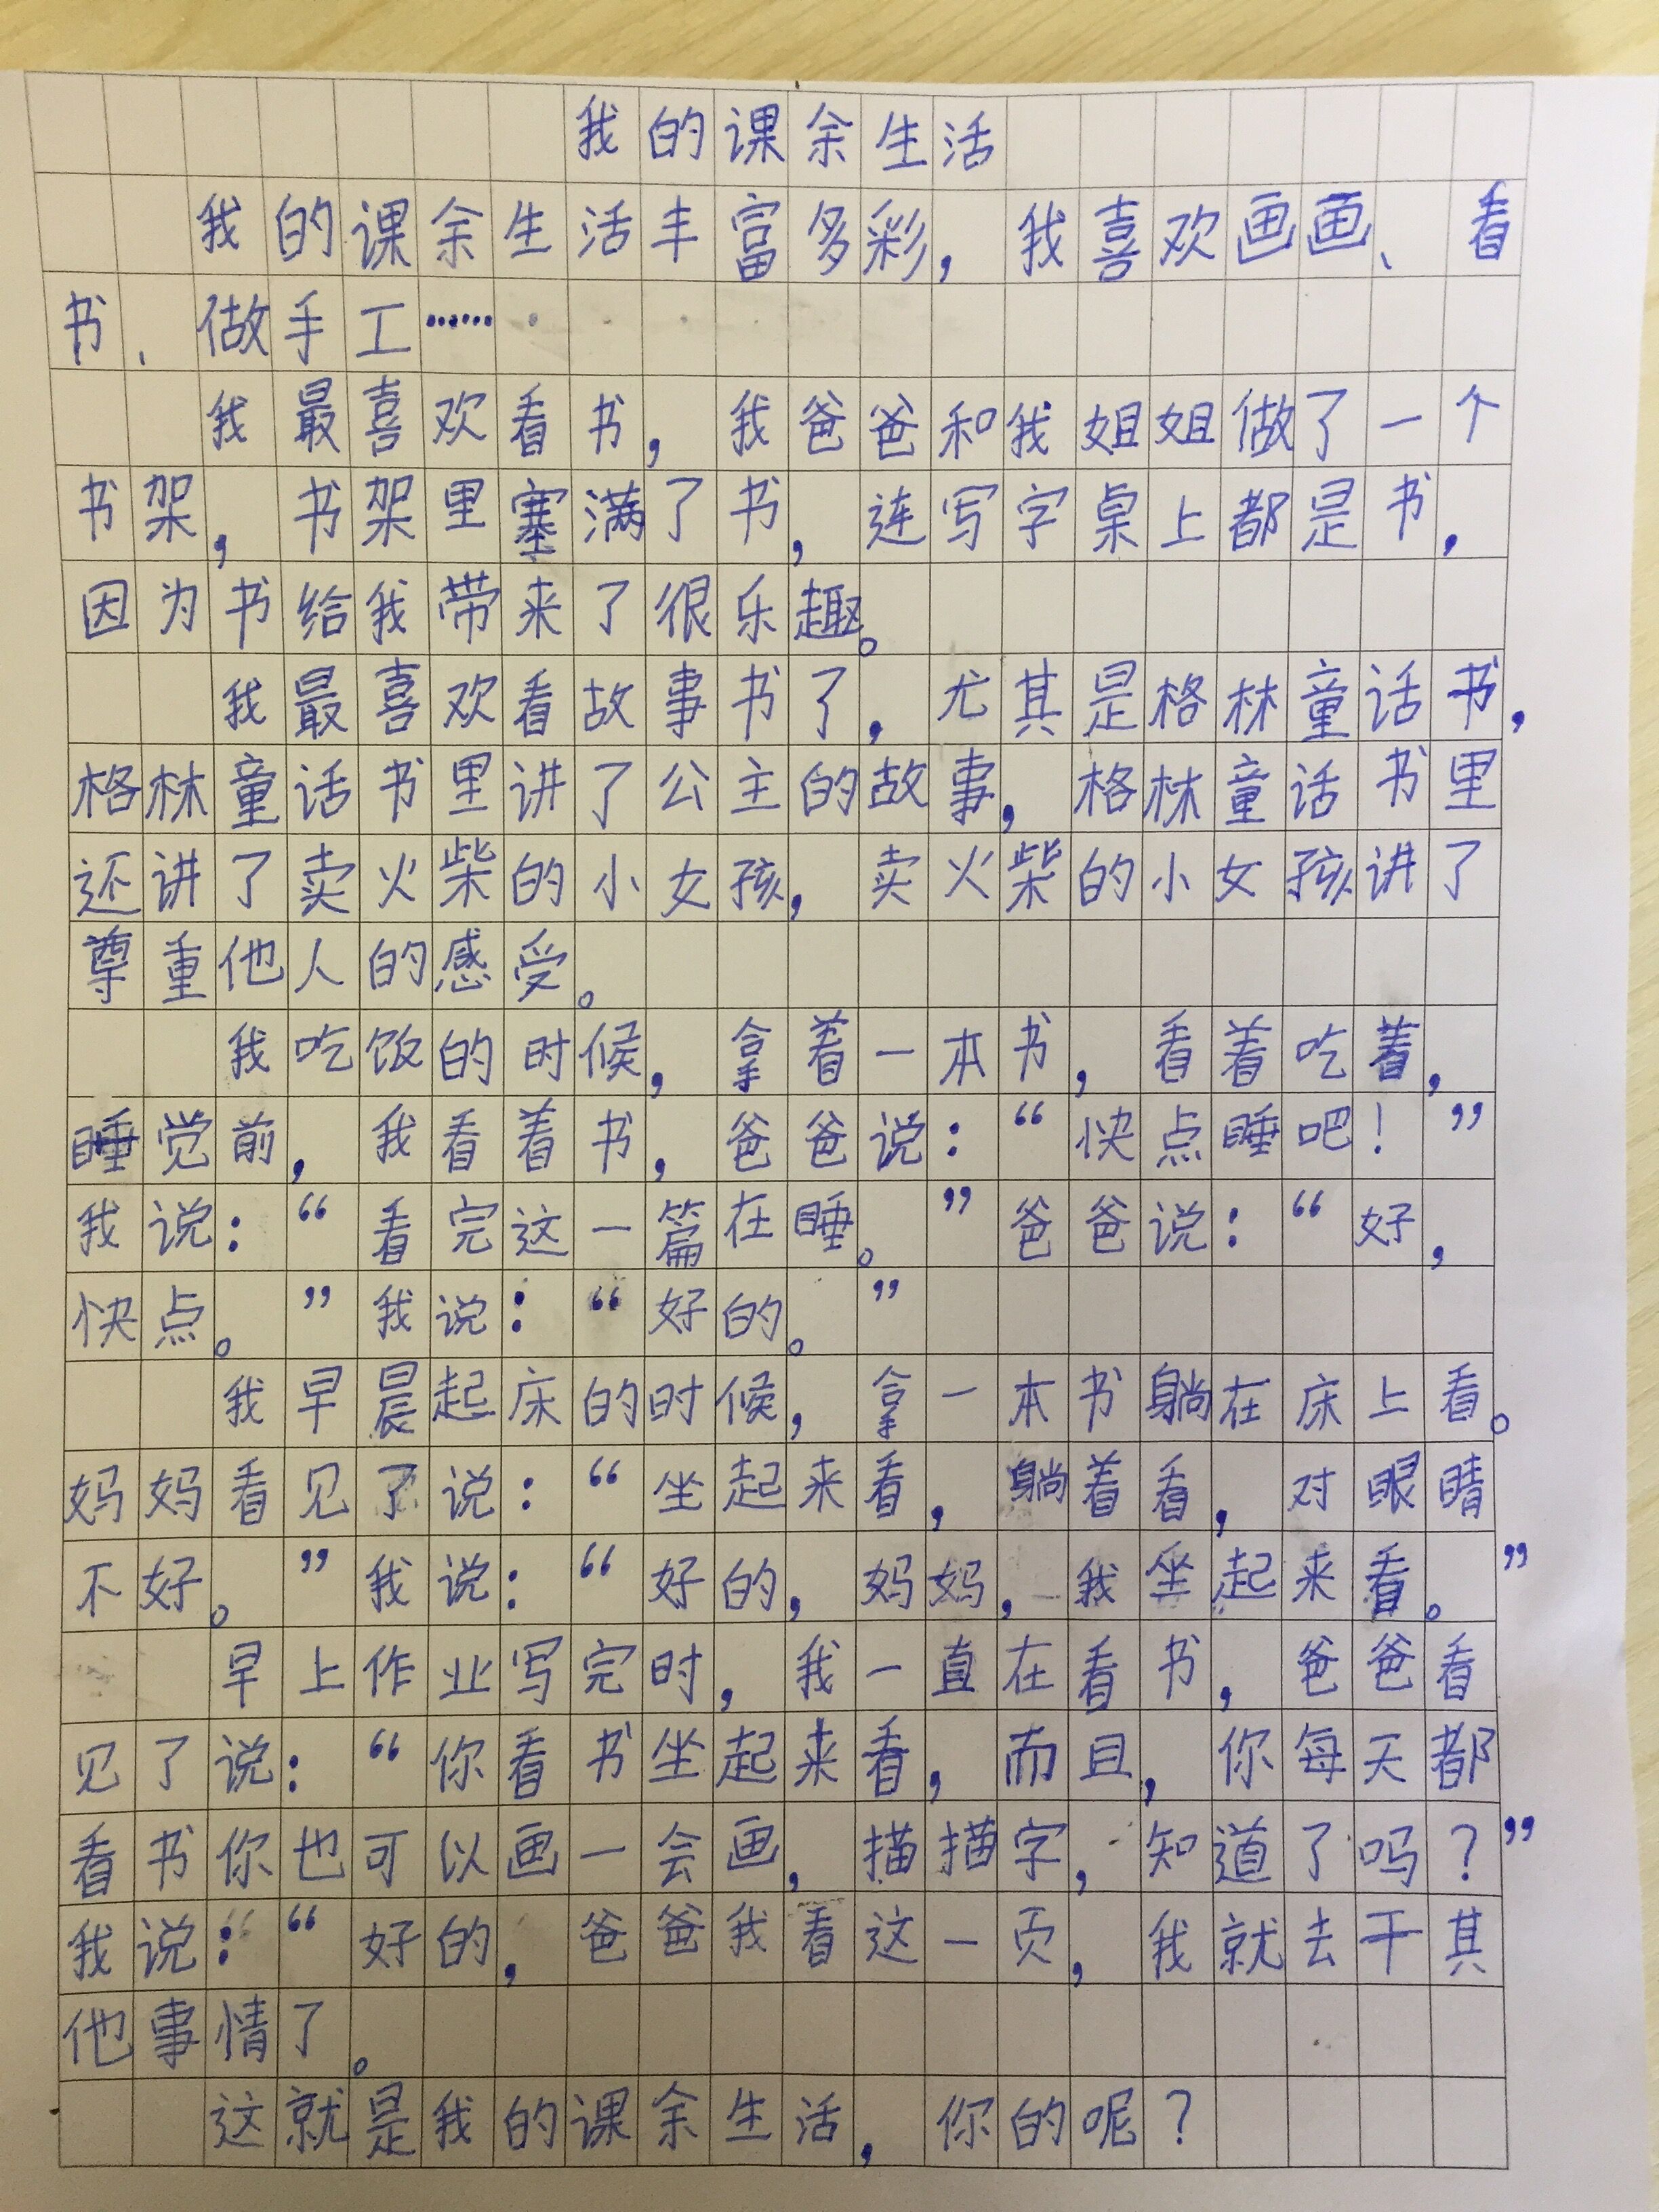 我的课余生活
我的课余生活丰富多彩，我喜欢画画、看
书、做手工……
我最喜欢看书，我爸爸和我姐姐做了一个
书架，书架里塞满了书，连写字桌上都是书，
因为书给我带来了很乐趣。
我最喜欢看故事书了，尤其是格林童话书，
格林童话书里讲了公主的故事，格林童话书里
还讲了卖火柴的小女孩，卖火柴的小女孩讲了
尊重他人的感受。
我吃饭的时候，拿着一本书，看着吃着，
睡觉前，我看着书，爸爸说：“快点睡吧！”
我说：“看完这一篇在睡。”爸爸说：“好，
快点。”我说：“好的。”
我早晨起床的时候，拿一本书躺在床上看。
妈妈看见了说：“坐起来看，躺着看，对眼睛
不好。”我说：“好的，妈妈，我坐起来看。”
早上作业写完时，我一直在看书，爸爸看
见了说：“你看书坐起来看，而且，你每天都
看书你也可以画一会画，描描字，知道了吗？”
我说：“好的，爸爸我看这一页，我就去干其
他事情了。
这就是我的课余生活，你的呢？